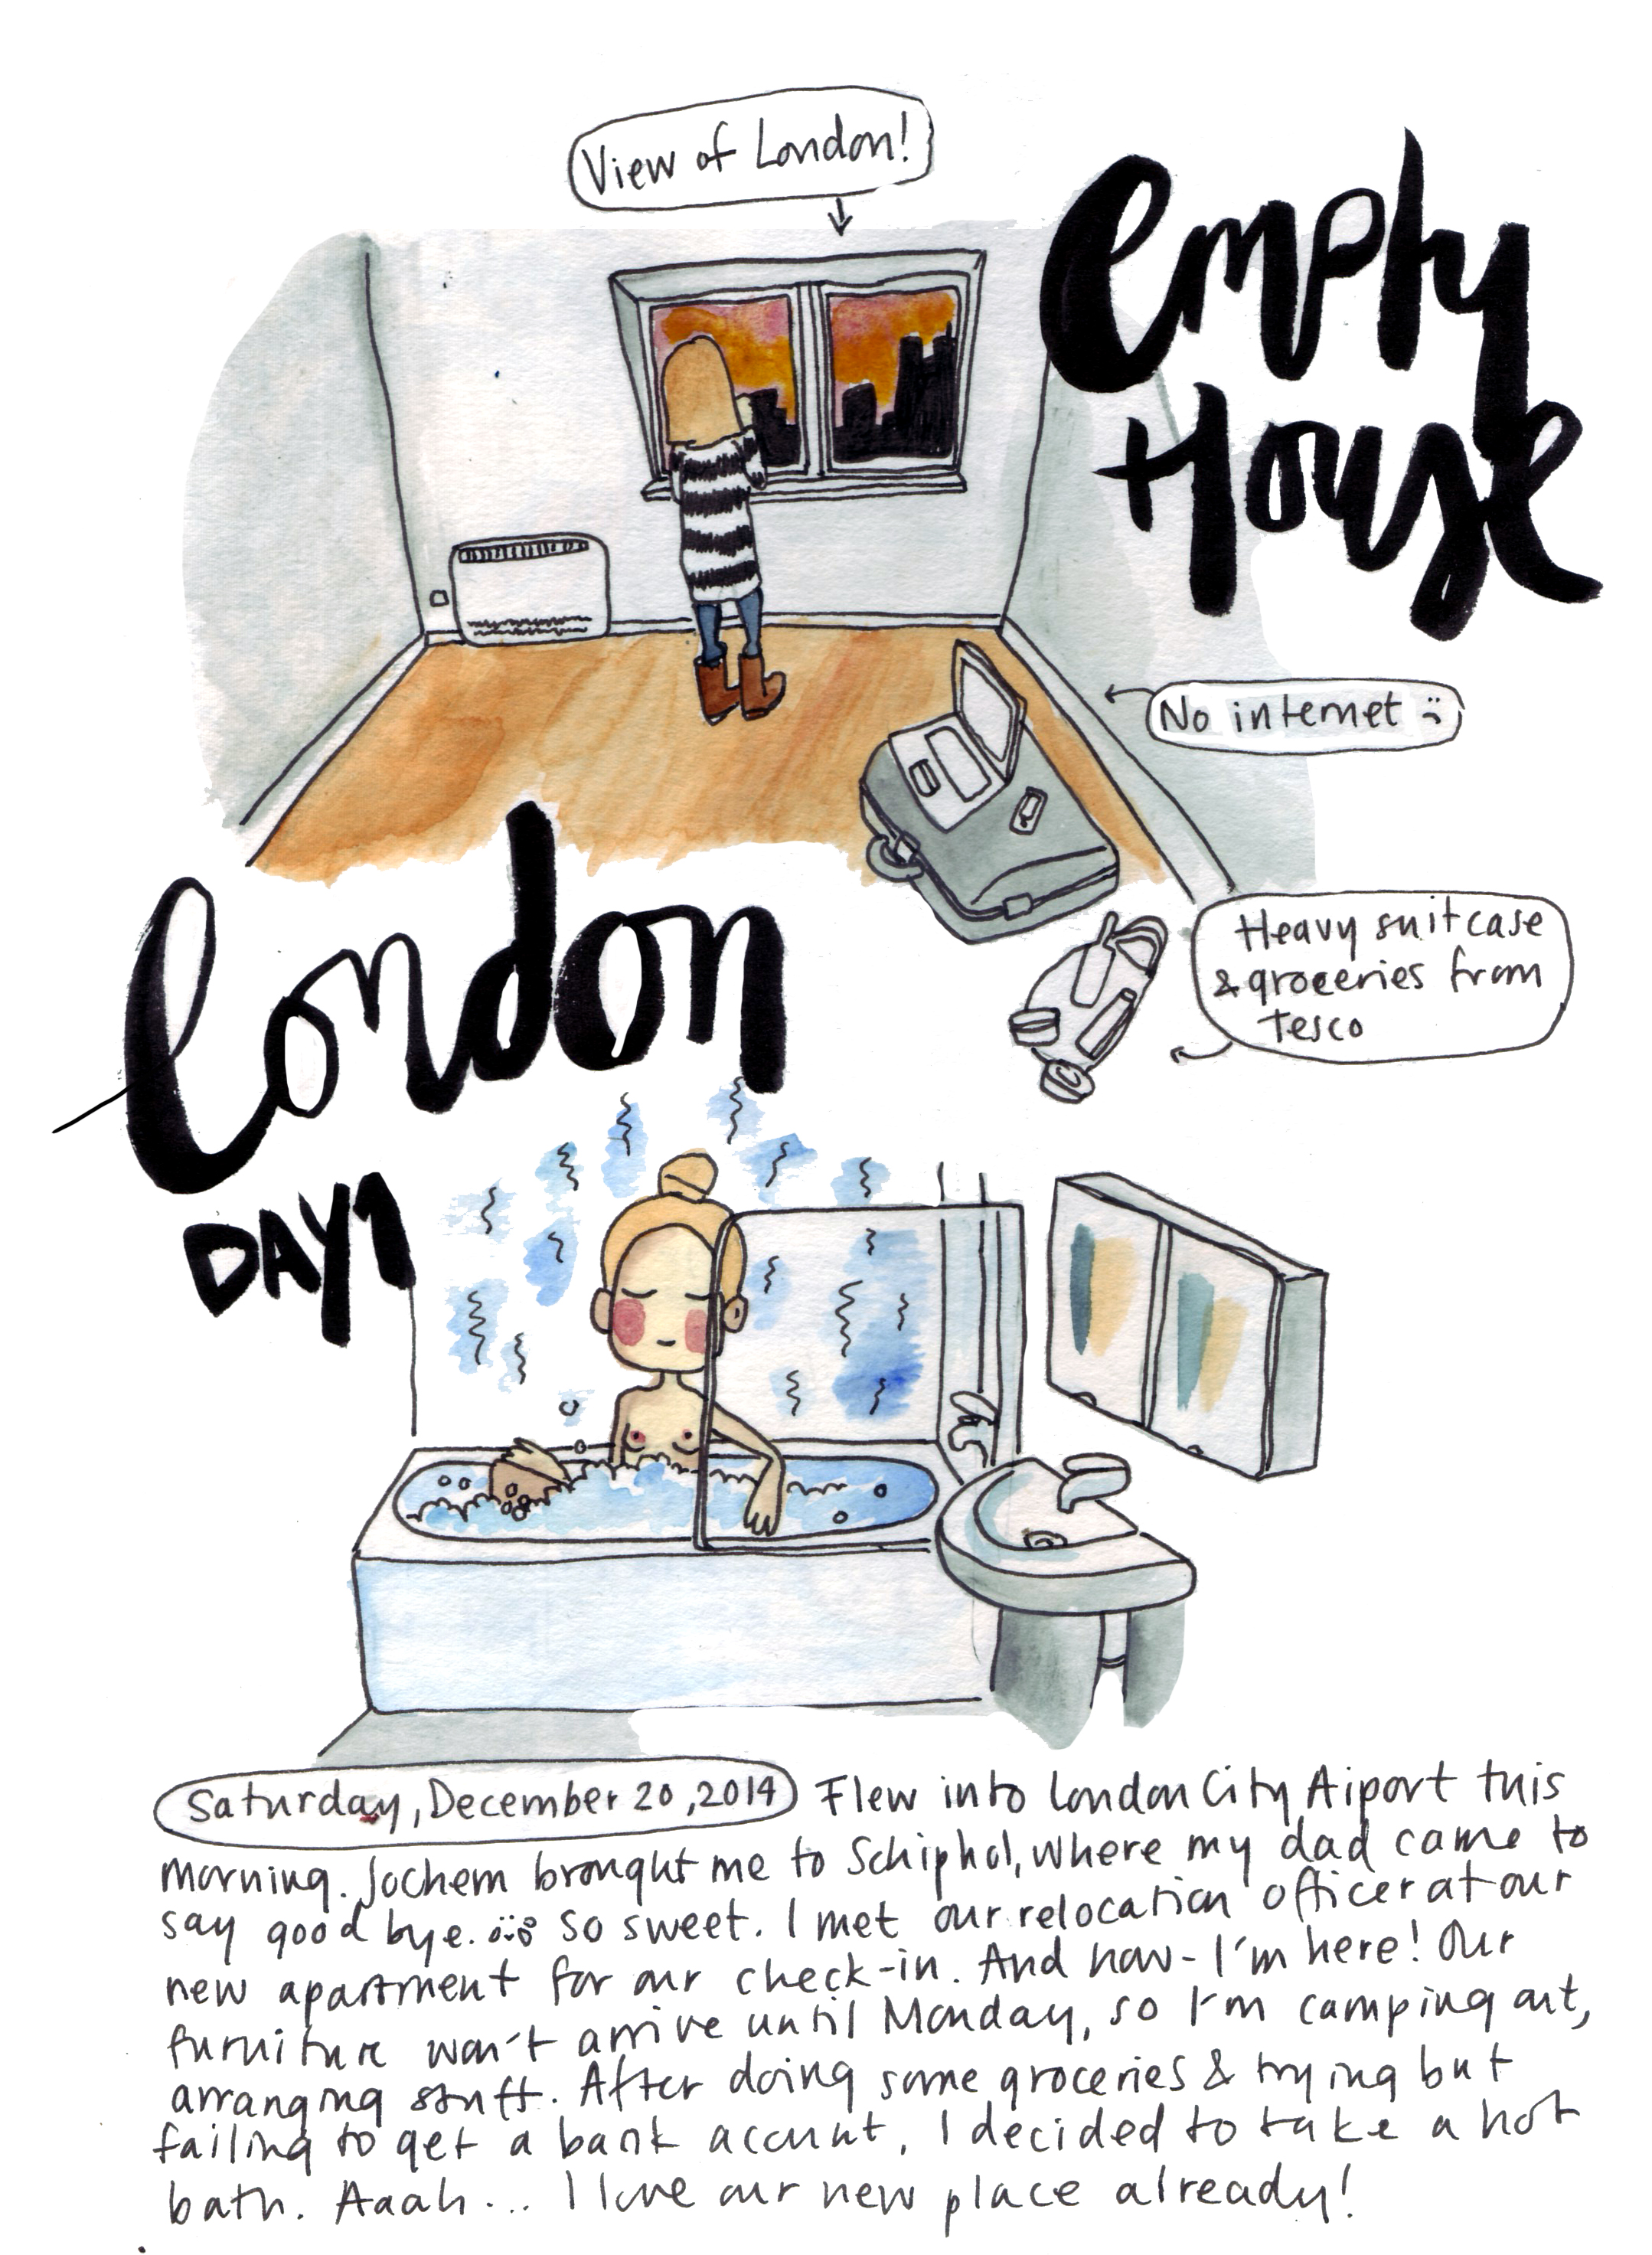 View of London!
Empty
House
No internet :(
Heavy suitcase
& groceries from
Tesco
London
DAY 1
Saturday, December 20, 2014 Flew into London City Aiport this
morning. Jochem brought me to Schiphol, where my dad came to
say good bye. So sweet. I met our relocation officer at our
new apartment for our check-in. And now - I'm here! Our
furniture won't arrive until Monday, so I'm camping out,
arranging stuff. After doing some groceries & trying but
failing to get a bank account, I decided to take a hot
bath. Aaah... I love our new place already!